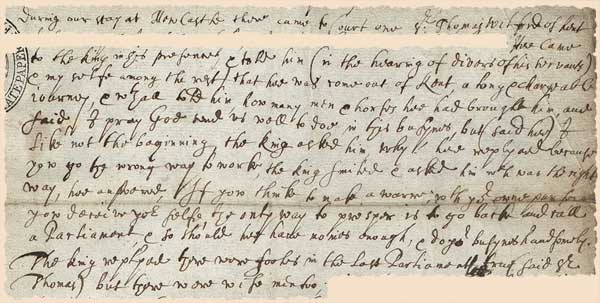 During our stay at NewCastle there came to Court one Sr. Thomas Wil ford of kent
hee came
to the king in his presence, & told him (in the hearing of divers of his servants)
& my selfe among the rest) that hee was come out of Kent a long & chargeable
journey, & wthall told him how many men & horses hee had brought him, and
said I pray God send us well to doe in this busynes, but said hee I
like not the beginning, the king asked him why? hee replyed because
you go the wrong way to worke the king smiled & asked him wch was the right
way, hee answered, If you think to make a warre wth yor owne purse
you deceive yor selfe, the only way to prosper is to go back and call
a Parliament, & so should wee have monies enough, & do yor busynes handsomely.
The king replyed there were fooles in the last Parliament, True said Sr
Thomas) but there were wise men too
ATE PAPER